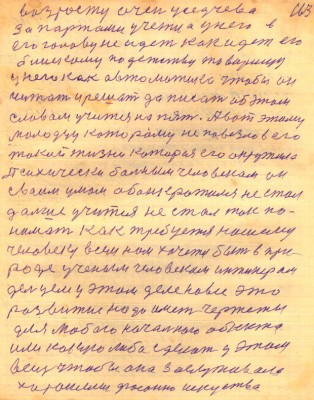 возрасту очен уседчева 663
За партами учетца у него в
его голову не идет как идет его
близкому подетству товарищу
у него как автоматика чтобы он
читат и решат да писат об этом
словам учится на пят. А вот этому
молодцу котораму не повезло в его
такой жизни которая его окружила
Психически болным человеком он
своим умом обанкротился не стал
далше учится не стал так по-
нимат как требуется нашему
человеку всем нам хочется быт в при-
роде ученым человеком инжинером
для этого
развитие надо имет чертежы
для любого началного объекта
или какую либо сделат у этом
вещ чтобы она заслуживала
хорошими искуства